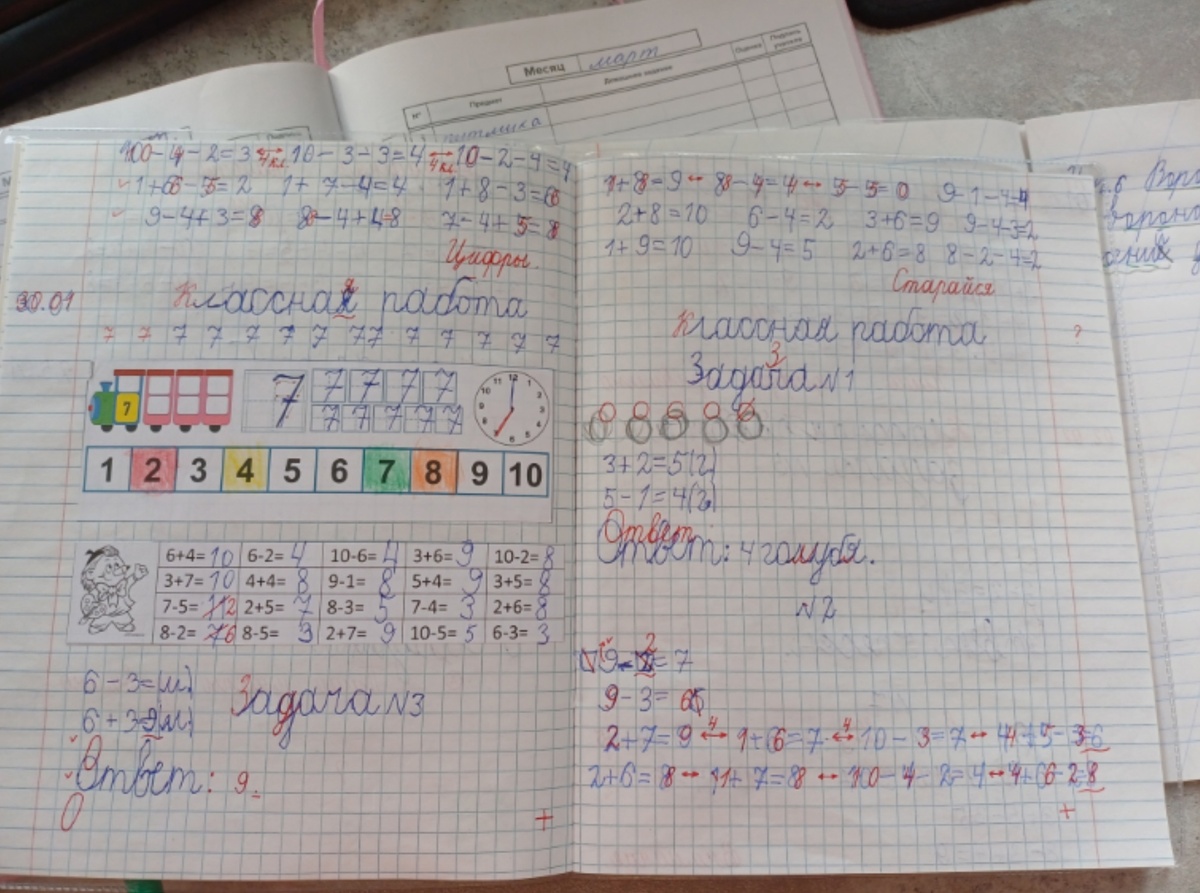 Месяц март
№ Предмет Домашнее задание Оценка Подпись учителя
10-4-2=3 4кл. 10-3-3=4 4кл. 10-2-4=4
1+6-5=2 1+7-4=4 1+8-3=6
9-4+3=8 8-4+4=8 7-4+5=8
Цифры.
30.01 Классная работа
7 7 7 7 7 7 7 7 7 7 7 7 7 7
7 7 7 7 7 7
7 7 7 7 7 7
11 12 1 10 2 9 3 8 4 7 6 5
1 2 3 4 5 6 7 8 9 10
6+4=10 6-2=4 10-6=4 3+6=9 10-2=8
3+7=10 4+4=8 9-1=8 5+4=9 3+5=8
7-5=2 2+5=7 8-3=5 7-4=3 2+6=8
8-2=6 8-5=3 2+7=9 10-5=5 6-3=3
6-3=(м)
6+3=9(м)
Задача №3
Ответ: 9.
+
1+8=9 8-4=4 5-5=0 9-1-4=4
2+8=10 6-4=2 3+6=9 9-4-3=2
1+9=10 9-4=5 2+6=8 8-2-4=2
Старайся
Классная работа
З
Задача №1
3+2=5(г)
5-1=4(г)
Ответ
Ответ: 4 голубя.
№2
9-2=7
9-3=6
2+7=9 4 1+6=7 4 10-3=7 4+5-3=6
2+6=8 1+7=8 10-4-2=4 4+6-2=8
+